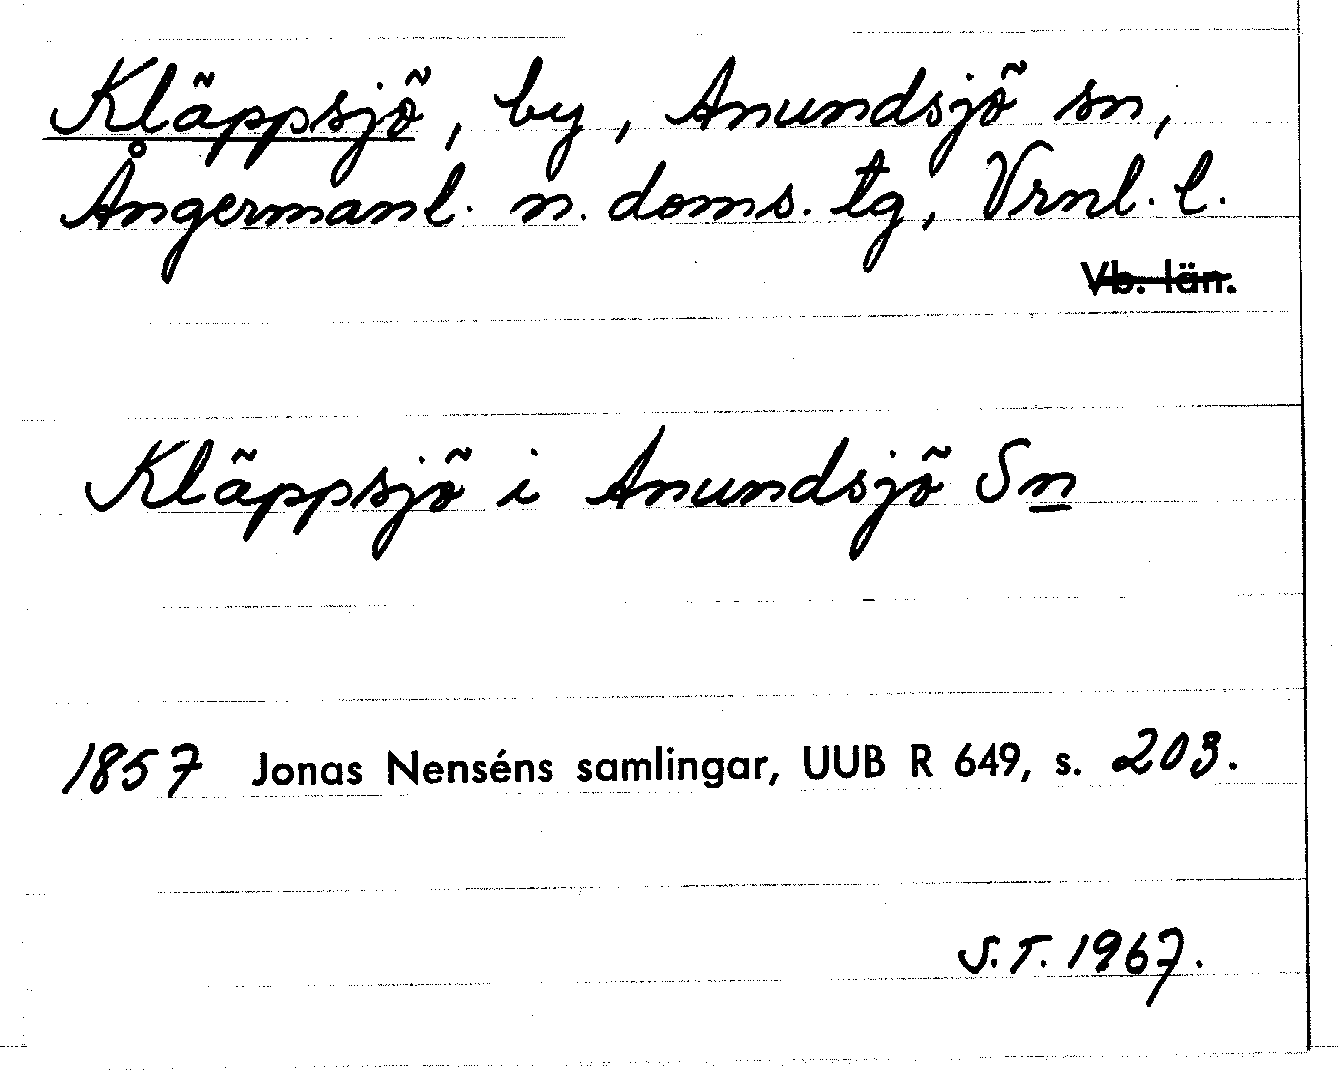 Kläppsjö, by, Anundsjö sn,
Ångermanl. n. doms. tg, Vrnl. l.
Vb. län.
Kläppsjö i Anundsjö Sn
1857 Jonas Nenséns samlingar, UUB R 649, s. 203.
S.T. 1967.